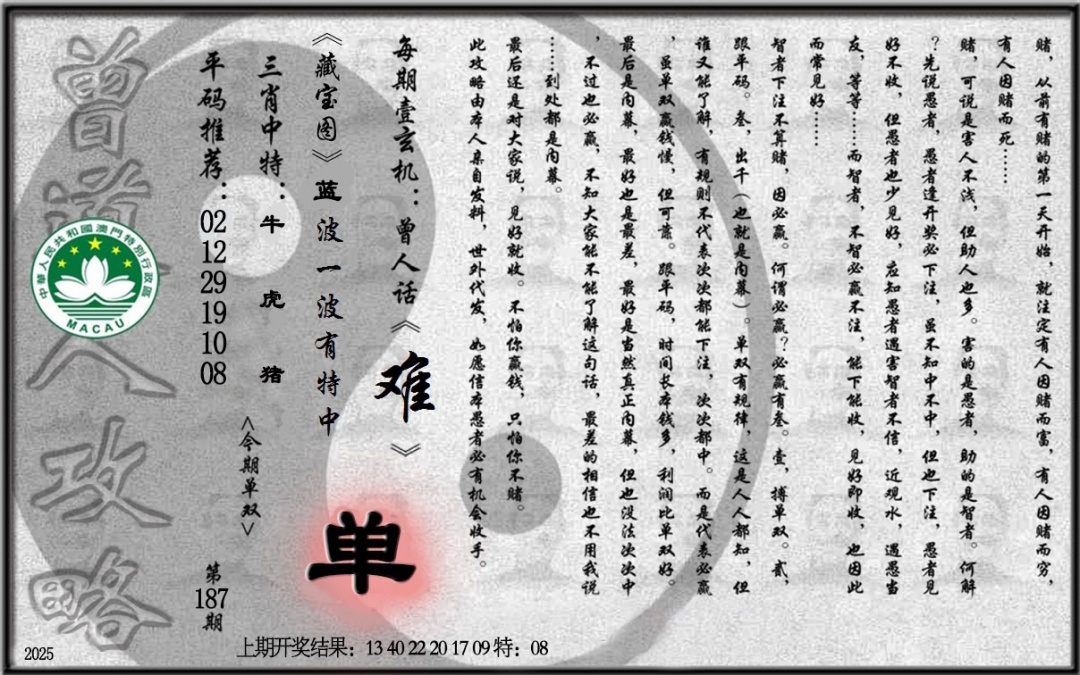 赌，从前有赌的第一天开始，就注定有人因赌而富，有人因赌而穷，
有人因赌而死……
赌，可说是害人不浅，但助人也多。害的是愚者，助的是智者。何解
？先说愚者，愚者逢开奖必下注，虽不知中不中，但也下注，愚者见
好不收，但愚者也少见好，应知愚者遇害智者不信，近观水，遇愚当
友，等等……而智者，不智必赢不注，能下能收，见好即收，也因此
而常见好……
智者下注不算赌，因必赢。何谓必赢？必赢有叁。壹，搏单双。贰，
跟平码。叁，出千（也就是内幕）。单双有规律，这是人人都知，但
谁又能了解，有规则不代表次次都能下注，次次都中。而是代表必赢
，虽单双赢钱慢，但可靠。跟平码，时间长本钱多，利润比单双好。
最后是内幕，最好也是最差，最好是当然真正内幕，但也没法次次中
，不过也必赢，不知大家能不能了解这句话，最差的相信也不用我说
……到处都是内幕。
最后还是对大家说，见好就收。不怕你赢钱，只怕你不赌。
此攻略由本人亲自发料，世外代发，如愿信本愚者必有机会收手。
每期壹玄机：曾人话《难》
《藏宝图》蓝波一波有特中
三肖中特：牛 虎 猪
平码推荐：02 12 29 19 10 08
<今期单双>
单
第187期
曾道人攻略
中華人民共和國澳門特別行政區
MACAU
上期开奖结果：13 40 22 20 17 09 特：08
2025